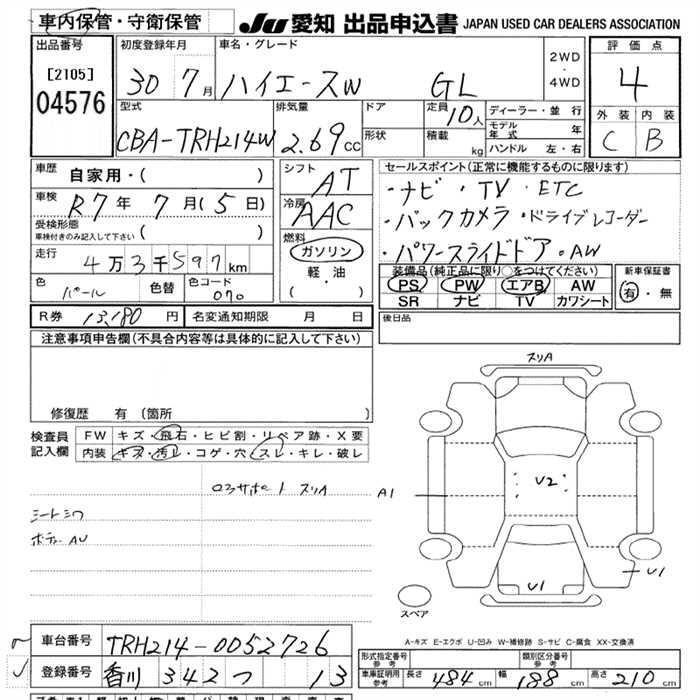 車内保管・守衛保管
JU 愛知 出品申込書 JAPAN USED CAR DEALERS ASSOCIATION
出品番号 [2105] 04576
初度登録年月 30 7月
車名・グレード ハイエースW GL
2WD・4WD
評価点 4
外装 C 内装 B
型式 CBA-TRH214W
排気量 2.69 CC
ドア
形状
定員 10人
積載 kg
ディーラー・並行
モデル年式 年
ハンドル 左・右
車歴 自家用・( )
車検 R7年 7月(5日)
受検形態 車検付きのみ記入して下さい ( )
走行 4万3千597km
色 パール 色替 色コード 070
シフト AT
冷房 AAC
燃料 ガソリン 軽・油 ( ・ )
セールスポイント(正常に機能するものに限ります)
・ナビ・TV・ETC
・バックカメラ・ドライブレコーダー
・パワースライドドア・AW
装備品(純正品に限り○をつけてください)
PS PW エアB AW
SR ナビ TV カワシート
新車保証書 有・無
R券 13,180円 名変通知期限 月 日
後日品
注意事項申告欄(不具合内容等は具体的に記入して下さい)
修復歴 有 (箇所
検査員記入欄
FW キズ・飛石・ヒビ割・リペア跡・X要
内装 キズ・汚レ・コゲ・穴・スレ・キレ・破レ
ロアサポート スリA
シートシワ
ボディーAU
スリA
A1
U2
U1
U1
スペア
A-キズ E-エクボ U-凹み W-補修跡 S-サビ C-腐食 XX-交換済
車台番号 TRH214-0052726
登録番号 香川 342 つ 13
形式指定番号 参考
類別区分番号 参考
車庫証明用参考 長さ 484cm 幅 188cm 高さ 210cm